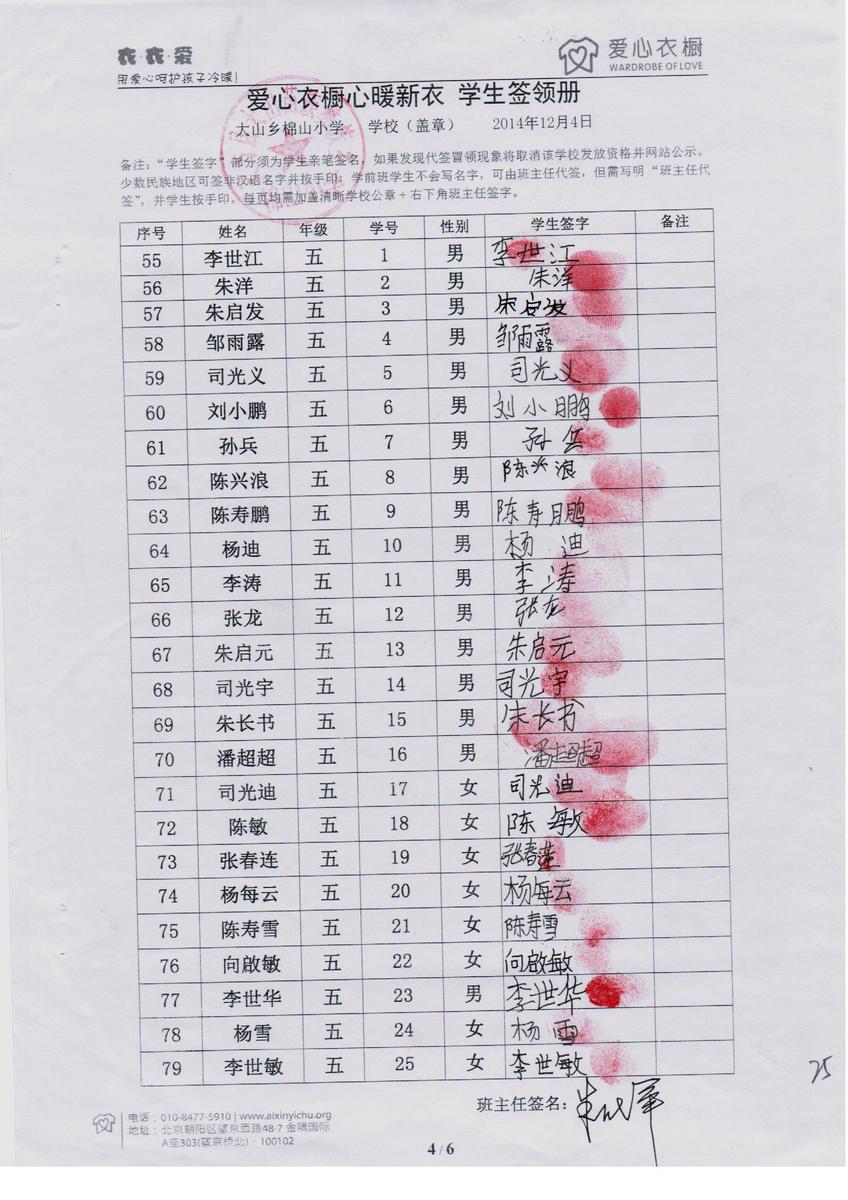 衣·衣·爱
用爱心呵护孩子冷暖
爱心衣橱
WARDROBE OF LOVE
爱心衣橱心暖新衣 学生签领册
大山乡棉山小学 学校（盖章） 2014年12月4日
备注：“学生签字”部分须为学生亲笔签名，如果发现代签冒领现象将取消该学校发放资格并网站公示。
少数民族地区可签非汉语名字并按手印；学前班学生不会写名字，可由班主任代签，但需写明“班主任代
签”，并学生按手印。每页均需加盖清晰学校公章+右下角班主任签字。
序号 姓名 年级 学号 性别 学生签字 备注
55 李世江 五 1 男 李世江
56 朱洋 五 2 男 朱洋
57 朱启发 五 3 男 朱启发
58 邹雨露 五 4 男 邹雨露
59 司光义 五 5 男 司光义
60 刘小鹏 五 6 男 刘小鹏
61 孙兵 五 7 男 孙兵
62 陈兴浪 五 8 男 陈兴浪
63 陈寿鹏 五 9 男 陈寿鹏
64 杨迪 五 10 男 杨迪
65 李涛 五 11 男 李涛
66 张龙 五 12 男 张龙
67 朱启元 五 13 男 朱启元
68 司光宇 五 14 男 司光宇
69 朱长书 五 15 男 朱长书
70 潘超超 五 16 男 潘超超
71 司光迪 五 17 女 司光迪
72 陈敏 五 18 女 陈敏
73 张春连 五 19 女 张春莲
74 杨每云 五 20 女 杨每云
75 陈寿雪 五 21 女 陈寿雪
76 向啟敏 五 22 女 向啟敏
77 李世华 五 23 男 李世华
78 杨雪 五 24 女 杨雪
79 李世敏 五 25 女 李世敏
25
班主任签名：
电话：010-8477-5910 | www.aixinyichu.org
地址：北京朝阳区望京西路48-7 金隅国际
A座303(望京桥北)·100102
4 / 6